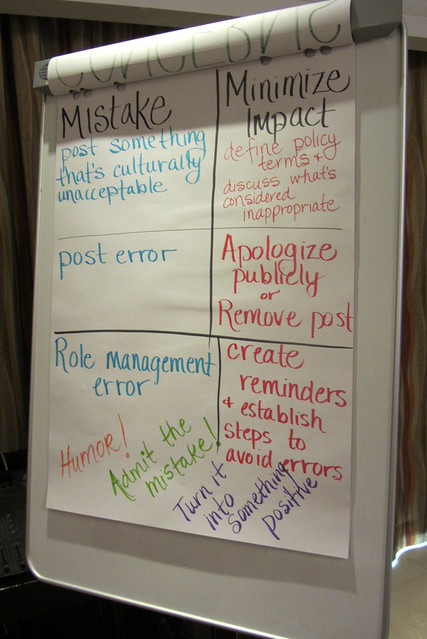 Mistake
post something
that's culturally
unacceptable
Minimize
Impact
define policy
terms &
discuss what's
considered
inappropriate
post error
Apologize
publicly
or
Remove post
Role management
error
create
reminders
& establish
steps to
avoid errors
Humor!
Admit the
mistake!
Turn it
into
something
positive